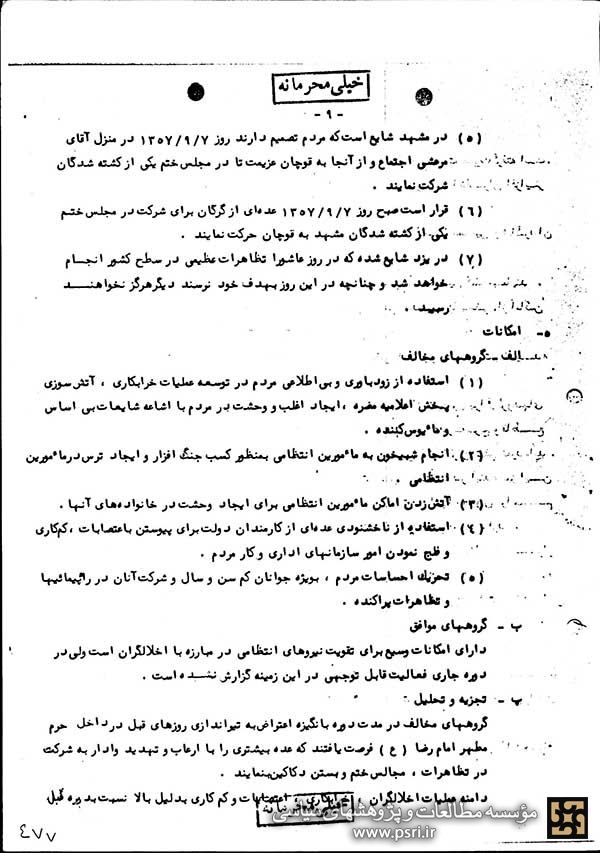 خیلی محرمانه
- ۹ -
(۵) در مشهد شایع است که مردم تصمیم دارند روز ۱۳۵۷/۹/۷ در منزل آقای
مرعشی اجتماع و از آنجا به قوچان عزیمت تا در مجلس ختم یکی از کشته شدگان
شرکت نمایند .
(۶) قرار است صبح روز ۱۳۵۷/۹/۷ عده‌ای از گرگان برای شرکت در مجلس ختم
یکی از کشته شدگان مشهد به قوچان حرکت نمایند .
(۷) در یزد شایع شده که در روز عاشورا تظاهرات عظیمی در سطح کشور انجام
خواهد شد و چنانچه در این روز بهدف خود نرسند دیگر هرگز نخواهند
رسید .
۵- امکانات
الف - گروههای مخالف
(۱) استفاده از زودباوری و بی اطلاعی مردم در توسعه عملیات خرابکاری ، آتش سوزی
پخش اعلامیه مضره ، ایجاد اغلب و وحشت در مردم با اشاعه شایعات بی اساس
و مأیوس کننده .
(۲) انجام شبیخون به مأمورین انتظامی بمنظور کسب جنگ افزار و ایجاد ترس در مأمورین
انتظامی
(۳) آتش زدن اماکن مأمورین انتظامی برای ایجاد وحشت در خانواده‌های آنها .
(۴) استفاده از ناخشنودی عده‌ای از کارمندان دولت برای پیوستن باعتصابات ، کم کاری
و فلج نمودن امور سازمانهای اداری و کار مردم .
(۵) تحریک احساسات مردم ، بویژه جوانان کم سن و سال و شرکت آنان در راهپیمائیها
و تظاهرات پراکنده .
ب - گروههای موافق
دارای امکانات وسیع برای تقویت نیروهای انتظامی در مبارزه با اخلالگران است ولی در
دوره جاری فعالیت قابل توجهی در این زمینه گزارش نشده است .
پ - تجزیه و تحلیل
گروههای مخالف در مدت دوره با انگیزه اعتراض به تیراندازی روزهای قبل در داخل حرم
مطهر امام رضا (ع) فرصت یافتند که عده بیشتری را با ارعاب و تهدید وادار به شرکت
در تظاهرات ، مجالس ختم و بستن دکاکین بنمایند .
دامنه عملیات اخلالگران ، خرابکاری ، اعتصابات و کم کاری بدلیل بالا نسبت بدوره قبل
خیلی محرمانه
۴۷۷
مؤسسه مطالعات و پژوهشهای سیاسی
www.psri.ir